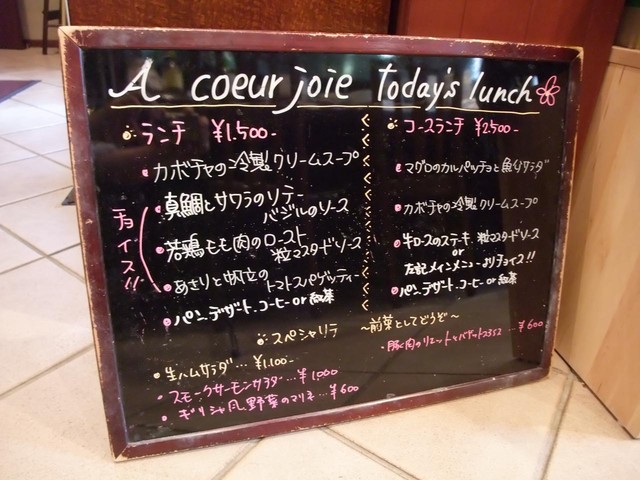 A coeur joie today's lunch
ランチ ¥1.500-
カボチャの冷製クリームスープ
チョイス!!
真鯛とサワラのソテー
バジルのソース
若鶏もも肉のロースト
粒マスタードソース
あさりと帆立の
トマトスパゲッティー
パン、デザート、コーヒーor紅茶
コースランチ ¥2.500-
マグロのカルパッチョと魚介サラダ
カボチャの冷製クリームスープ
牛ロースのステーキ 粒マスタードソース
or
左記メインメニューよりチョイス!!
パン、デザート、コーヒーor紅茶
スペシャリテ ~前菜としてどうぞ~
生ハムサラダ…¥1.100-
スモークサーモンサラダ…¥1,000
ギリシャ風、野菜のマリネ…¥600
豚肉のリエットとバゲット …¥600